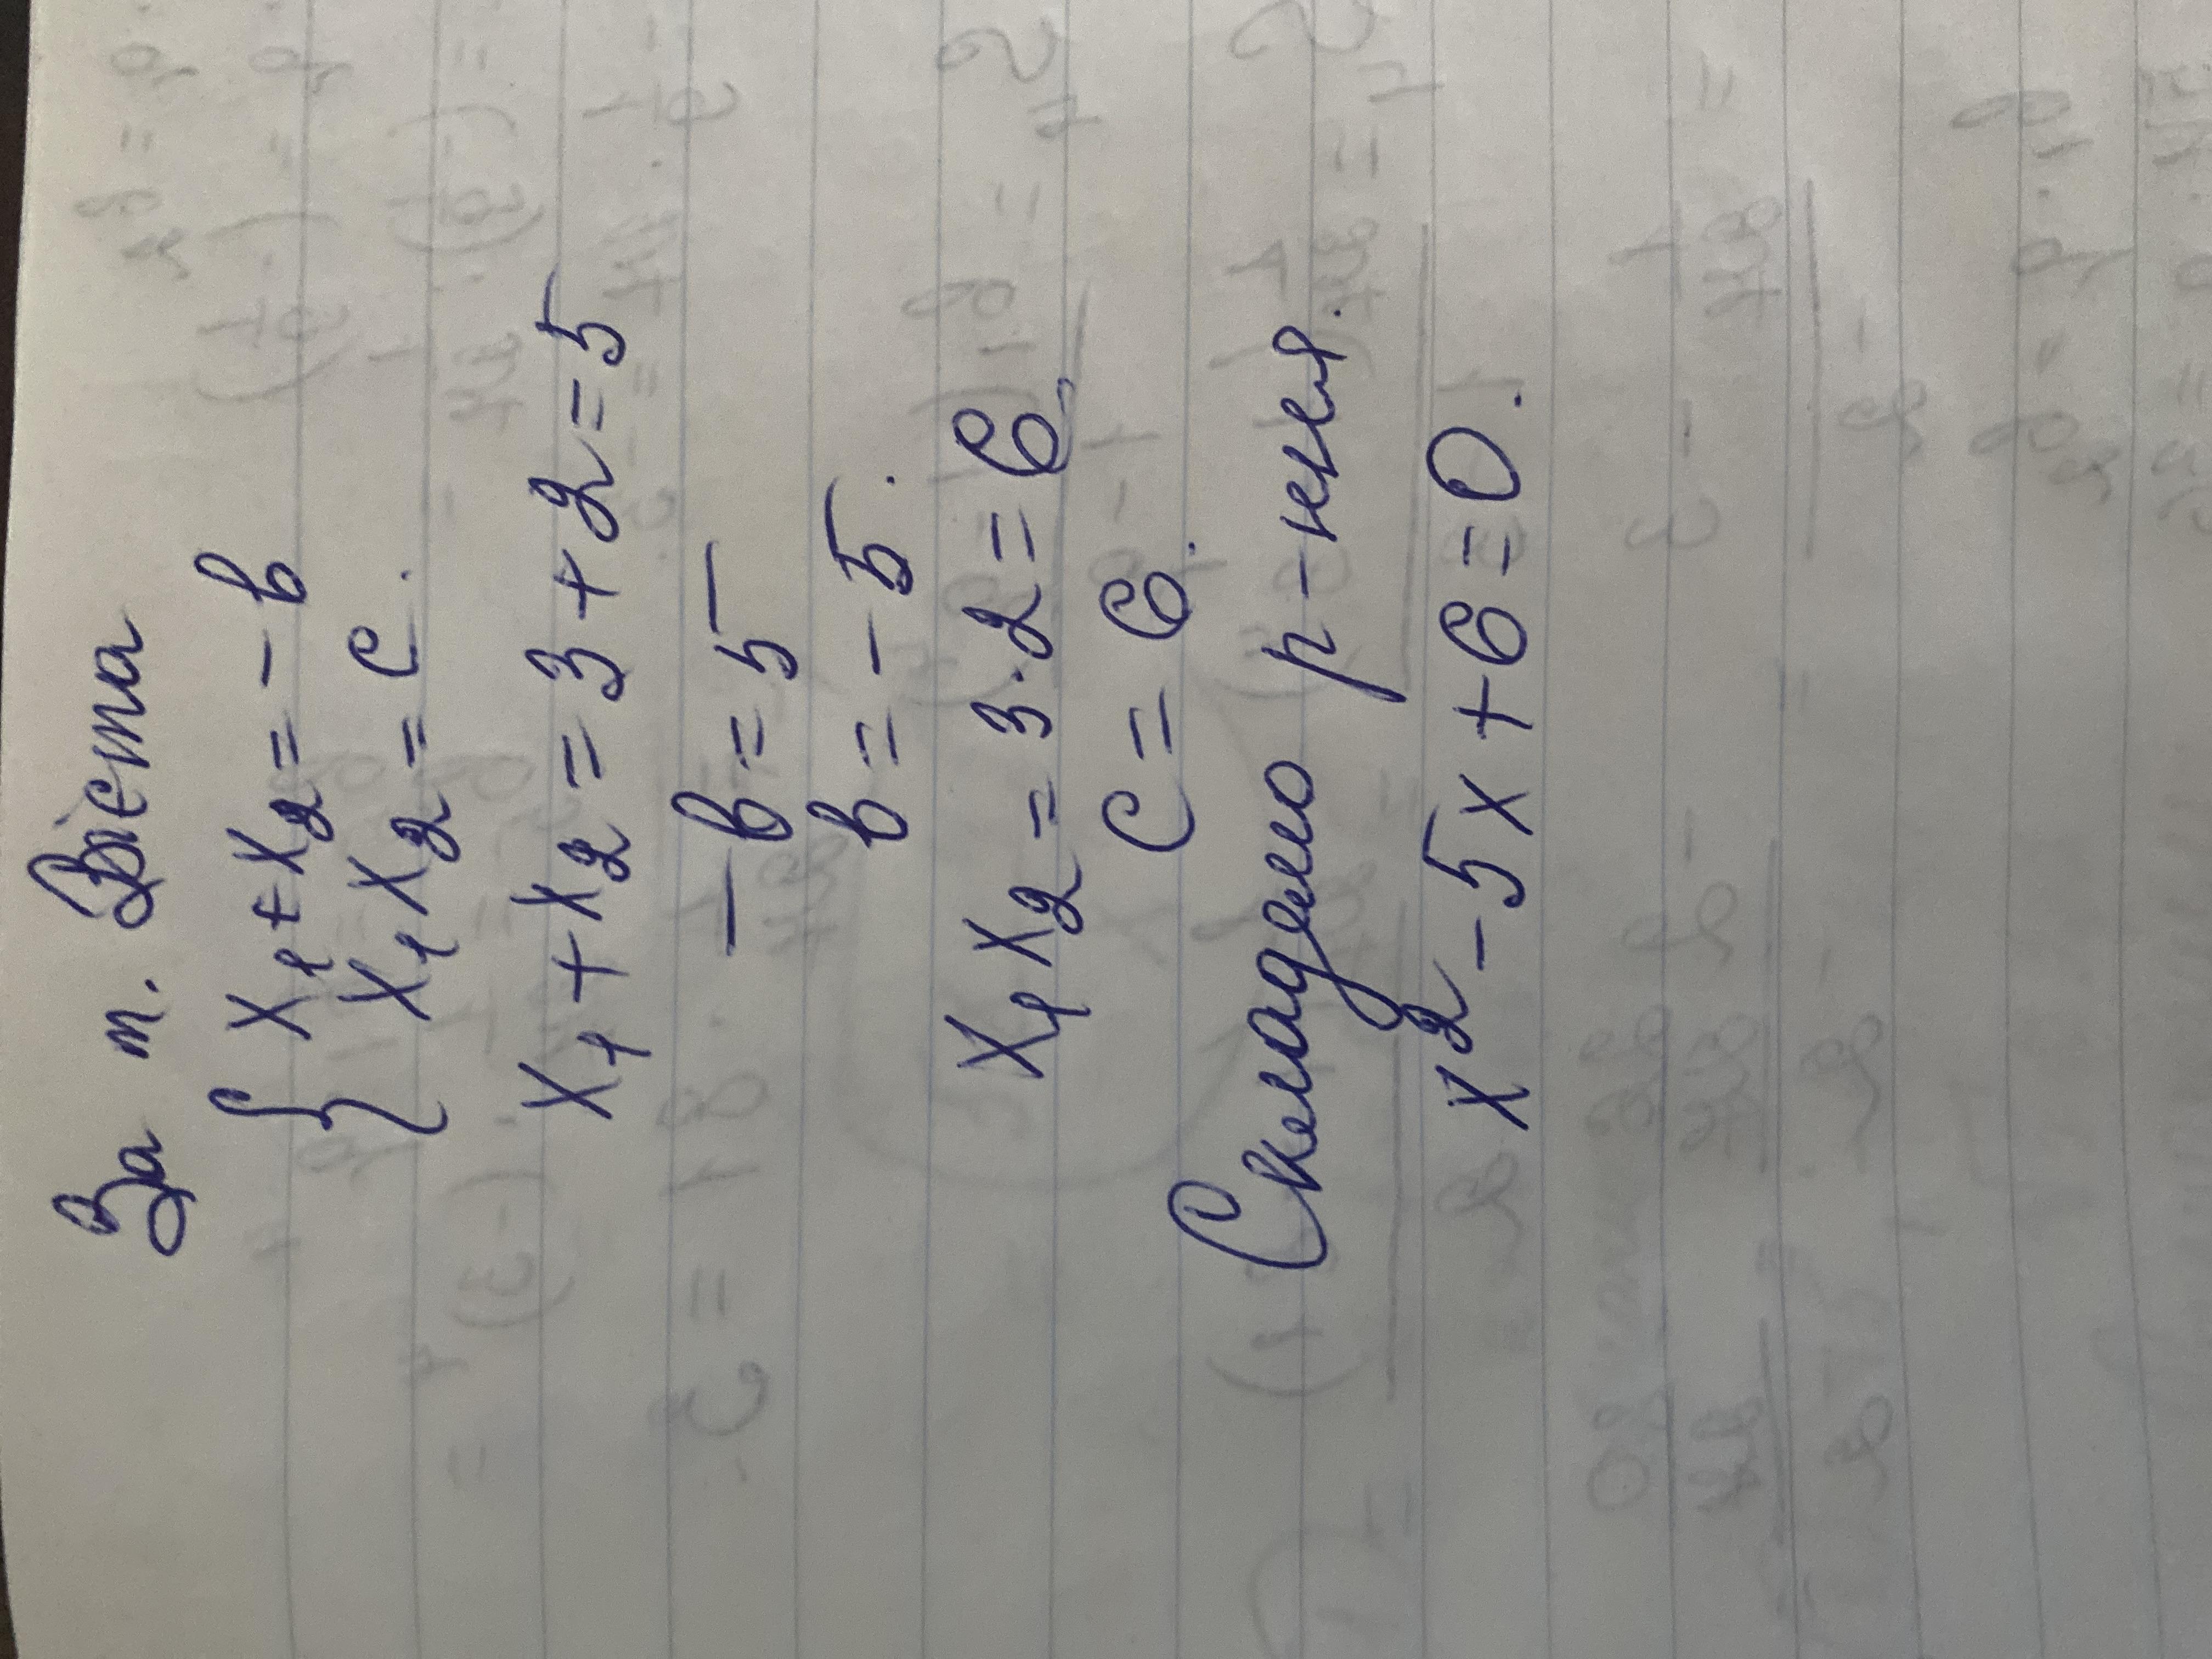 За т. Вієта
{ x₁ + x₂ = - b
x₁ x₂ = c.
x₁ + x₂ = 3 + 2 = 5
- b = 5
b = - 5.
x₁ x₂ = 3 · 2 = 6
c = 6.
Складемо р-ння.
x² - 5x + 6 = 0.